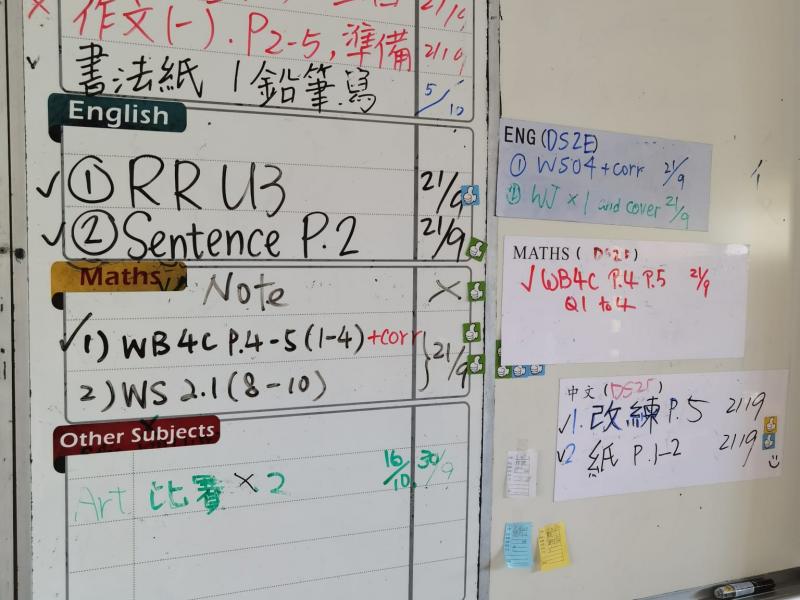 21/9
作文(一). P2-5, 準備 21/9
書法紙 1 鉛筆寫 5/10
English
✓ ① RR U3 21/9
✓ ② Sentence P.2 21/9
Maths
Note ×
✓ 1) WB 4C P.4-5 (1-4) +corr } 21/9
2) WS 2.1 (8-10)
Other Subjects
Art 比賽 × 2 16/10 30/9
ENG (DS2E)
① WS04 + corr 21/9
② WJ × 1 and cover 21/9
MATHS ( DS2E )
✓ WB4C P.4 P.5 21/9
Q1 to 4
中文 (DS2E)
✓1. 改練 P.5 21/9
✓2 紙 P.1-2 21/9